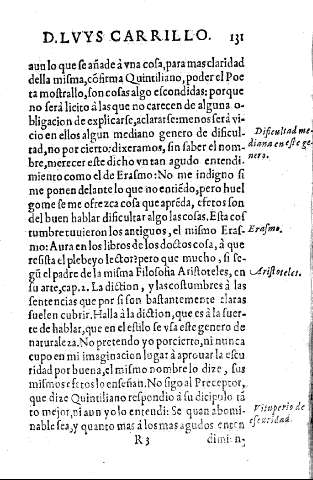 D. LVYS CARRILLO. 131
aun lo que se añade à vna cosa, para mas claridad
della misma, cõfirma Quintiliano, poder el Poe
ta mostrallo, son cosas algo escondidas: porque
no será licito à las que no carecen de alguna o-
bligacion de explicarse, aclararse: menos será vi-
cio en ellos algun mediano genero de dificul-
tad, no por cierto: dixeramos, sin saber el nom-
bre, merecer este dicho vn tan agudo entendi-
miento como el de Erasmo: No me indigno si
me ponen delante lo que no entiẽdo, pero huel
gome se me ofrezca cosa que aprẽda, efetos son
del buen hablar dificultar algo las cosas. Esta cos
tumbre tuuieron los antiguos, el mismo Eras-
mo: Aura en los libros de los doctos cosa, à que
resista el plebeyo lector? pero que mucho, si se-
gũ el padre de la misma Filosofia Aristoteles, en
su arte, cap. 2. La diction, y las costumbres à las
sentencias que por si son bastantemente claras
suelen cubrir. Halla à la diction, que es à la suer-
te de hablar, que en el estilo se vsa este genero de
naturaleza. No pretendo yo por cierto, ni nunca
cupo en mi imaginacion lugar à aprouar la escu
ridad por buena, el mismo nombre lo dize, sus
mismos efetos lo enseñan. No sigo al Preceptor,
que dize Quintiliano respondió a su dicipulo tã
to mejor, ni aun yo lo entendi: Se quan abomi-
nable sea, y quanto mas à los mas agudos enten
R 3 dimi: n-
Dificultad me-
diana en este ge-
nero.
Erasmo.
Aristoteles.
Vituperio de
escuridad.